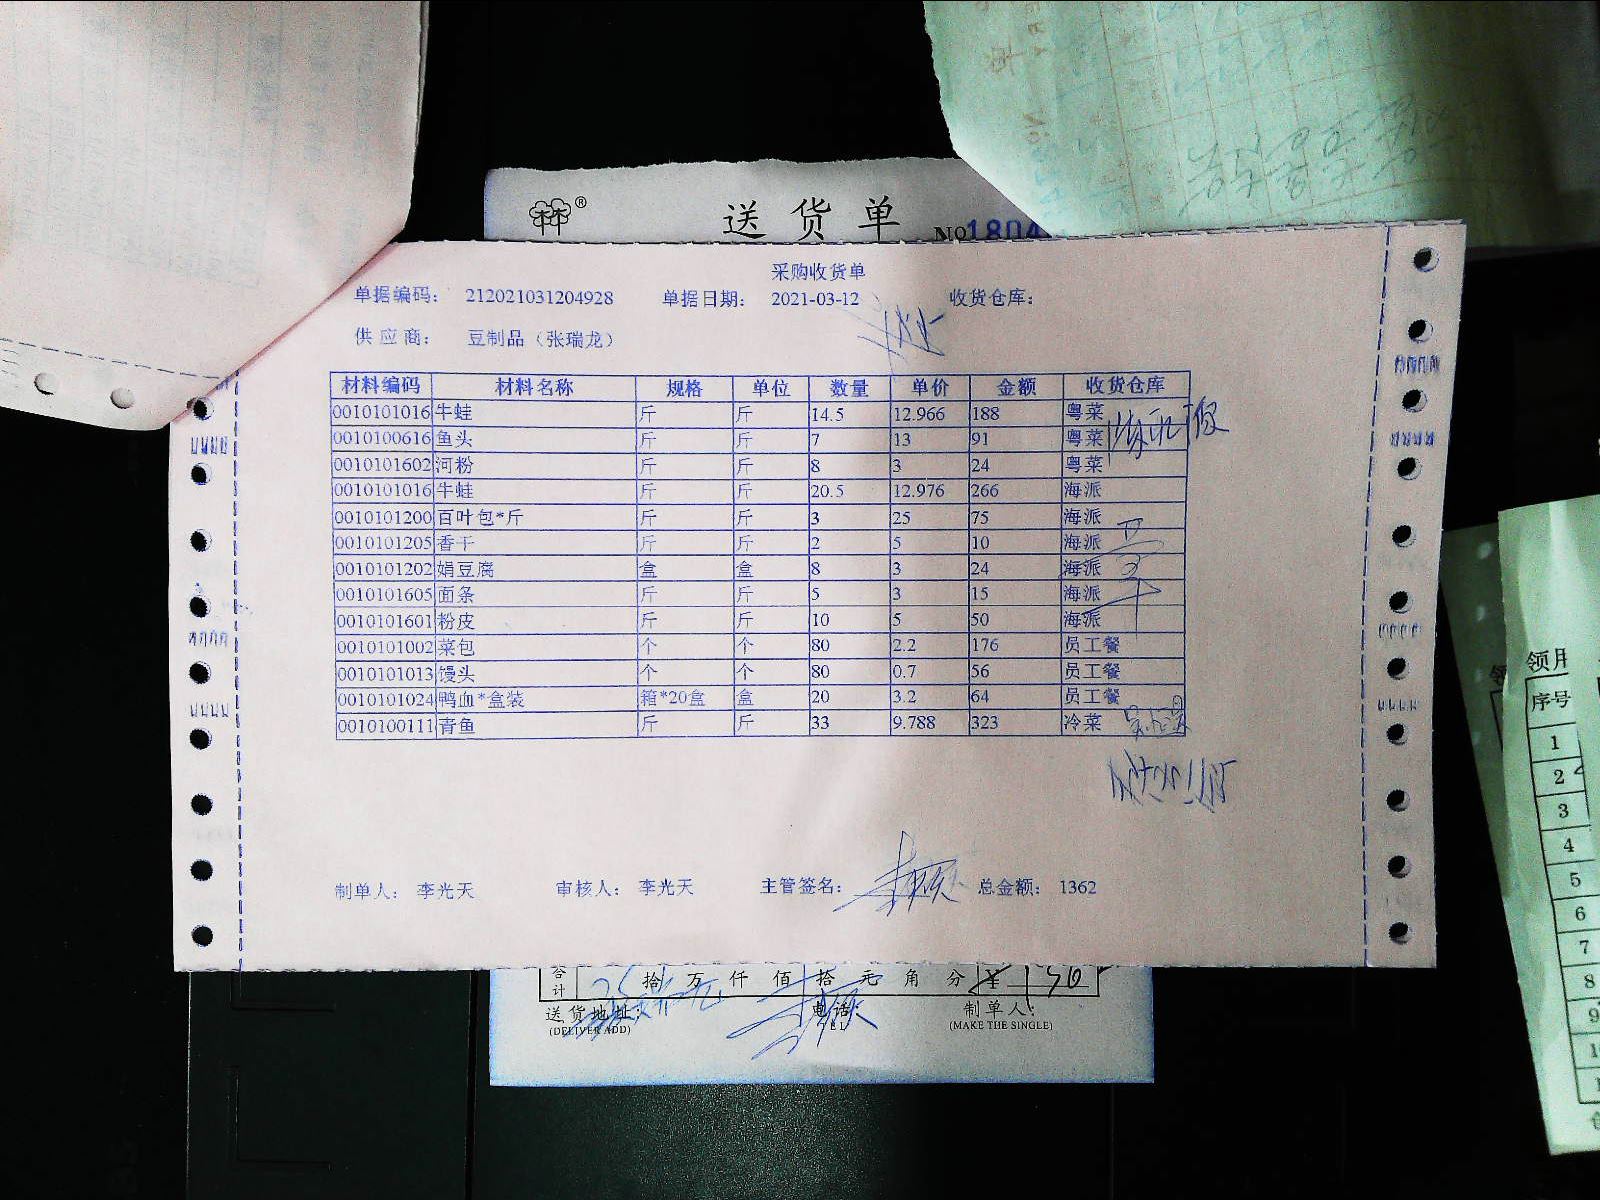 林®
送货单
采购收货单
单据编码： 212021031204928 单据日期： 2021-03-12 收货仓库：
供应商： 豆制品（张瑞龙）
材料编码 材料名称 规格 单位 数量 单价 金额 收货仓库
0010101016 牛蛙 斤 斤 14.5 12.966 188 粤菜
0010100616 鱼头 斤 斤 7 13 91 粤菜
0010101602 河粉 斤 斤 8 3 24 粤菜
0010101016 牛蛙 斤 斤 20.5 12.976 266 海派
0010101200 百叶包*斤 斤 斤 3 25 75 海派
0010101205 香干 斤 斤 2 5 10 海派
0010101202 娟豆腐 盒 盒 8 3 24 海派
0010101605 面条 斤 斤 5 3 15 海派
0010101601 粉皮 斤 斤 10 5 50 海派
0010101002 菜包 个 个 80 2.2 176 员工餐
0010101013 馒头 个 个 80 0.7 56 员工餐
0010101024 鸭血*盒装 箱*20盒 盒 20 3.2 64 员工餐
0010100111 青鱼 斤 斤 33 9.788 323 冷菜
制单人： 李光天 审核人： 李光天 主管签名： 总金额： 1362
合计 拾 万 仟 佰 拾 元 角 分
送货地址： 电话： 制单人：
(DELIVER ADD) TEL (MAKE THE SINGLE)
领用
序号
1
2
3
4
5
6
7
8
9